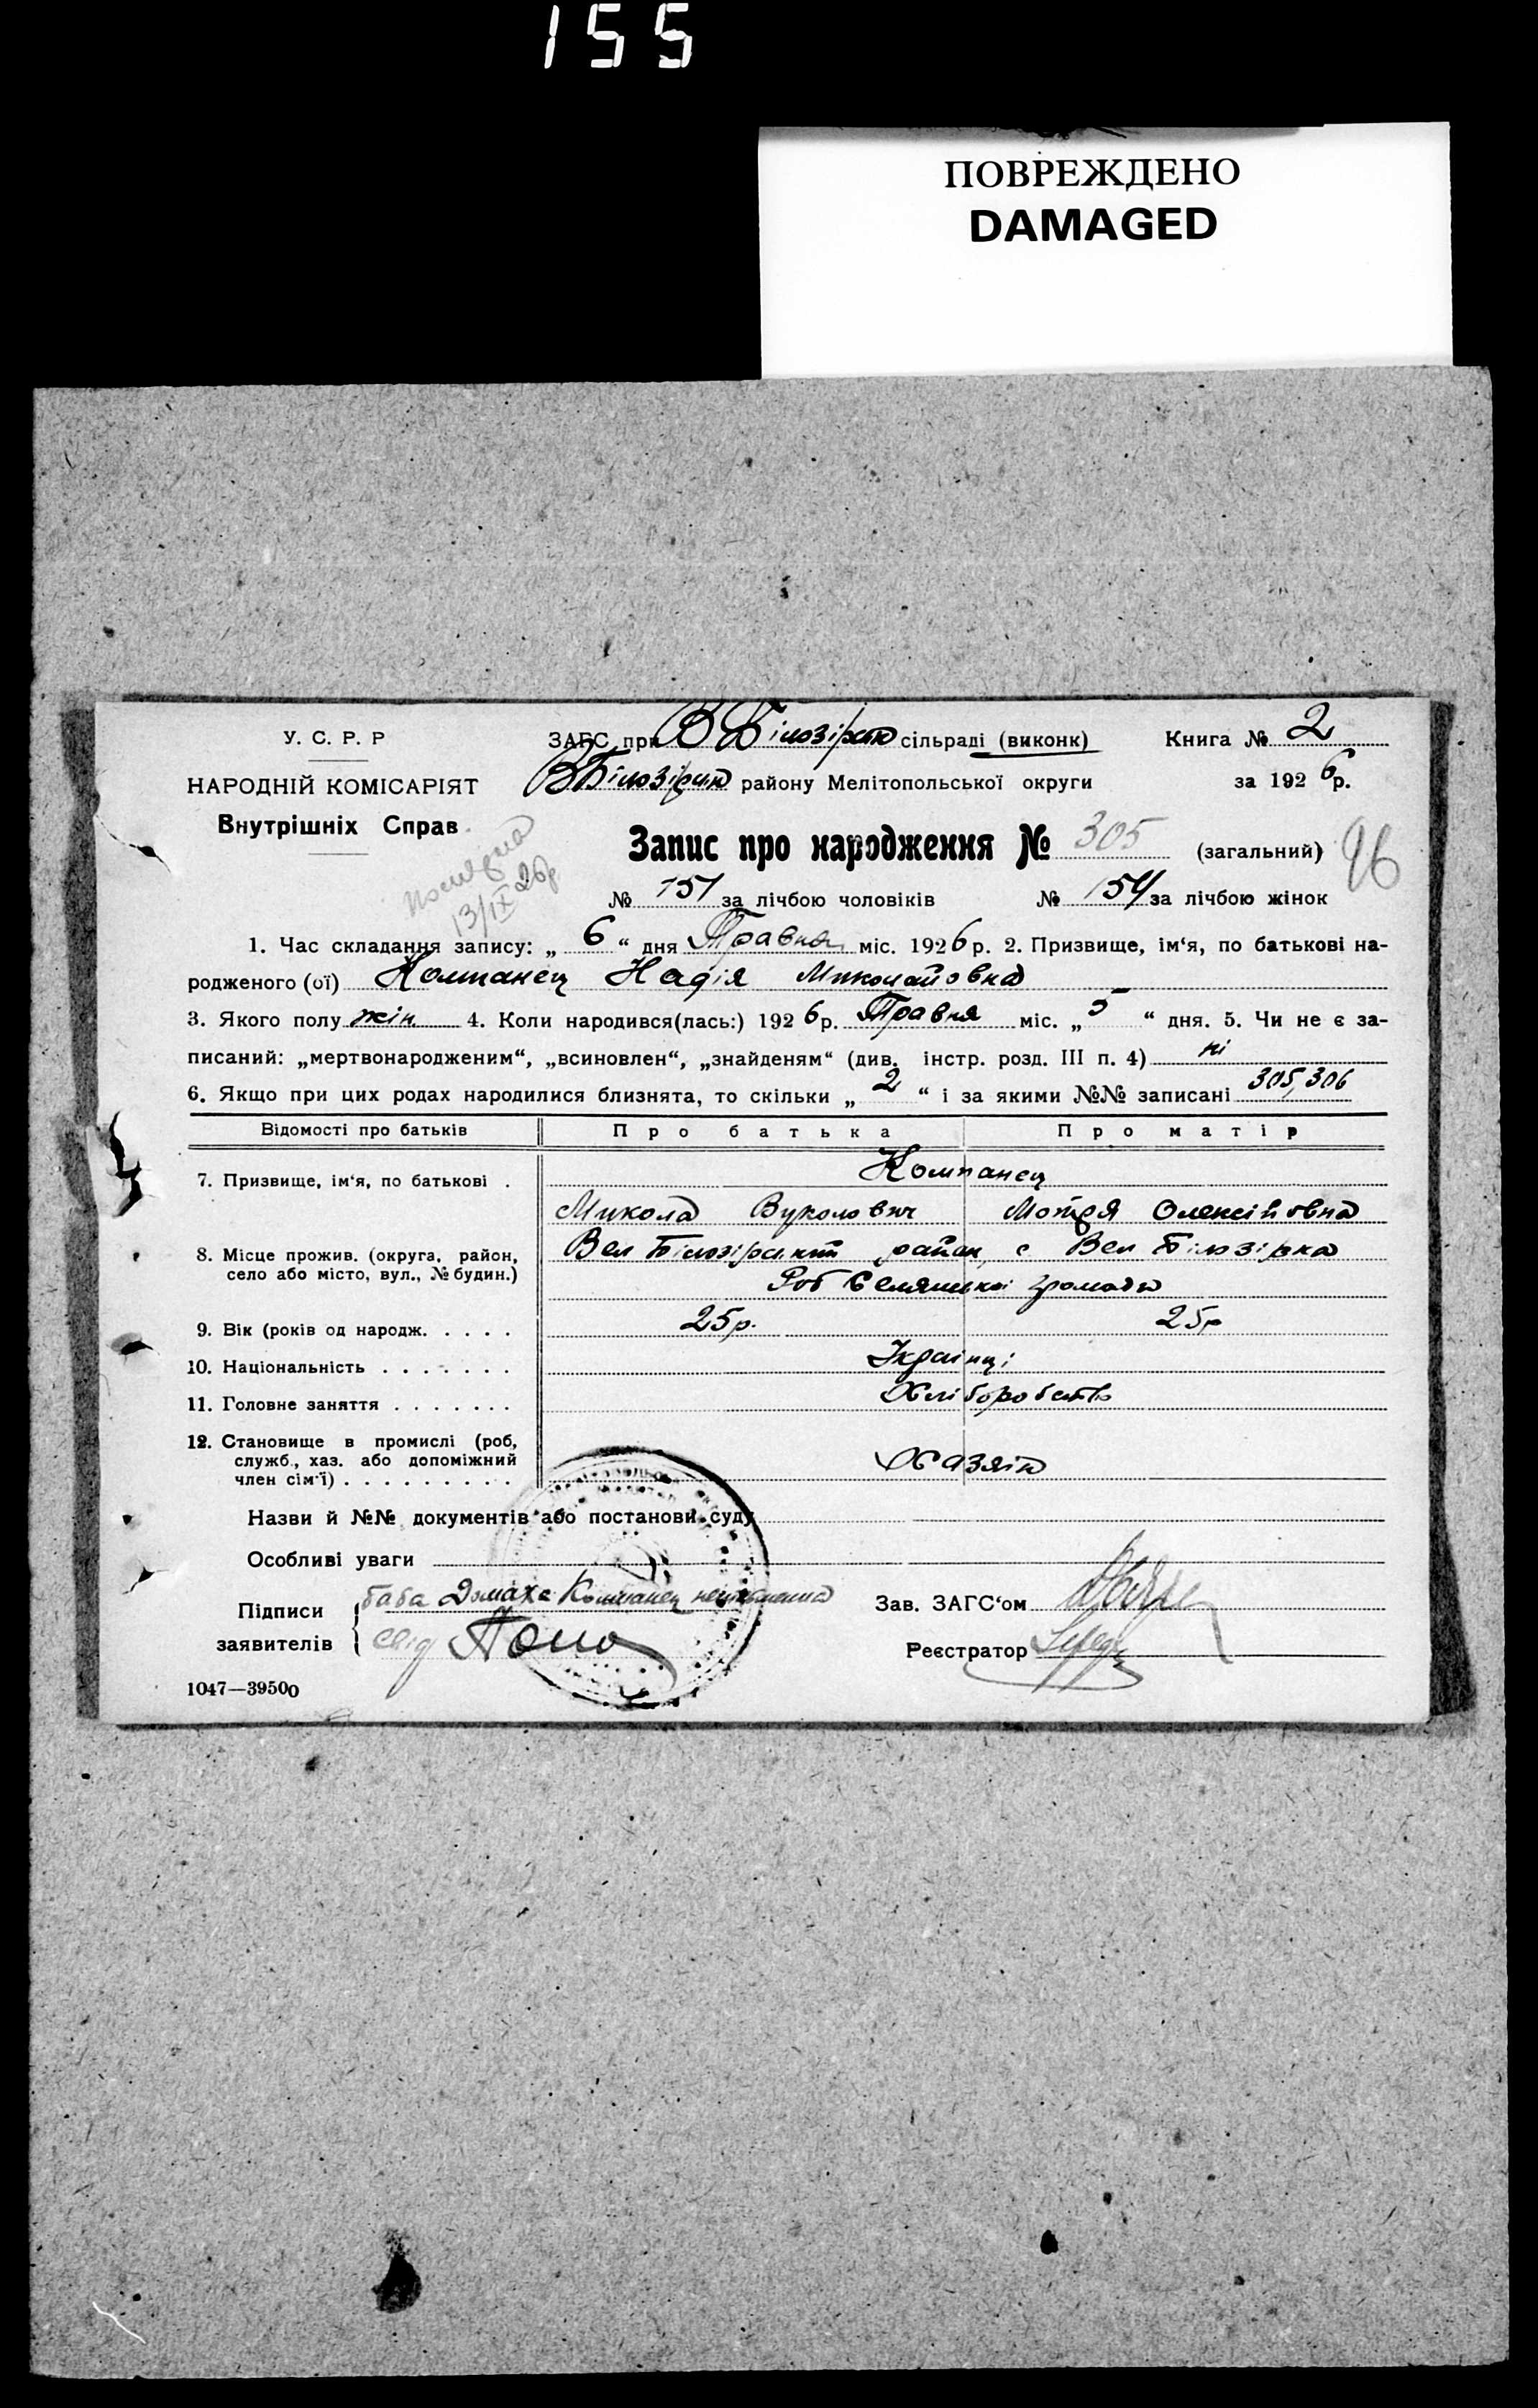 155
ПОВРЕЖДЕНО
DAMAGED
У. С. Р. Р
НАРОДНІЙ КОМІСАРІЯТ
Внутрішніх Справ.
ЗАГС при В Білозірск сільраді (виконк)
В Білозірск району Мелітопольської округи
Книга № 2
за 1926 р.
13/IX 26р
Запис про народження № 305 (загальний)
96
№ 151 за лічбою чоловіків № 154 за лічбою жінок
1. Час складання запису: „ 6 “ дня Травня міс. 1926 р. 2. Призвище, ім‘я, по батькові на-
родженого (ої) Компанец Надія Миколаївна
3. Якого полу жін. 4. Коли народився(лась:) 1926 р. Травня міс. „ 5 “ дня. 5. Чи не є за-
писаний: „мертвонародженим“, „всиновлен“, „знайденям“ (див. інстр. розд. III п. 4) ні
6. Якщо при цих родах народилися близнята, то скільки „ 2 “ і за якими №№ записані 305,306
Відомості про батьків Про батька Про матір
7. Призвище, ім‘я, по батькові . Компанец
Микола Вуколович Мотря Олексіївна
8. Місце прожив. (округа, район, село або місто, вул., № будин.) Вел Білозірський район, с Вел Білозірка
громади
9. Вік (років од народж. . . . . 25р. 25р
10. Національність . . . . . . . Українці
11. Головне заняття . . . . . . . Хліборобств
12. Становище в промислі (роб, служб., хаз. або допоміжний член сім‘ї) . . . . . . . . . Хазяїн
Назви й №№ документів або постанови суду
Особливі уваги
Підписи заявителів { баба Домаха Компанец неписьменна
свід
Зав. ЗАГС‘ом
Реєстратор
1047—39500